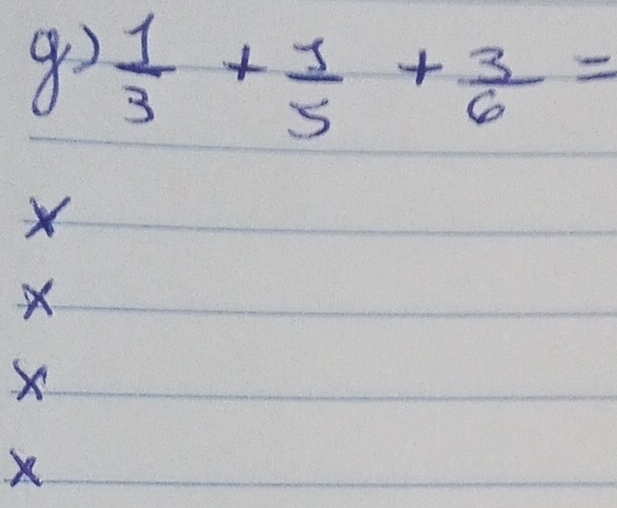 g) 1/3 + 1/5 + 3/6 =
x
x
x
x